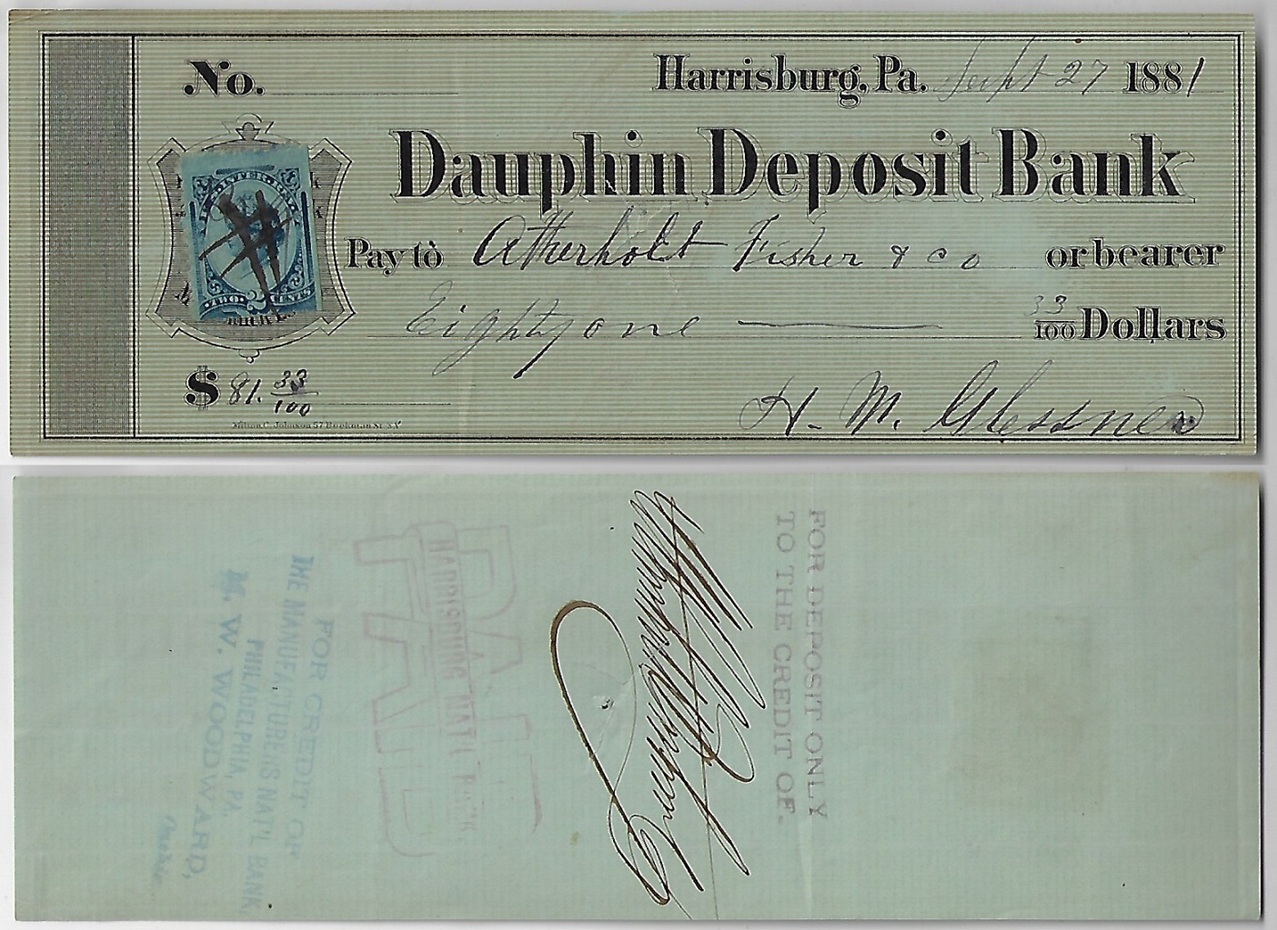 No.
Harrisburg, Pa. Sept 27 1881
Dauphin Deposit Bank
INTER. REV.
TWO 2 CENTS
Pay to Atherholt Fisher & Co or bearer
Eighty one 33/100 Dollars
$ 81. 33/100
Milton C. Johnson 57 Beekman St. N.Y.
H. M. Glessner
FOR DEPOSIT ONLY
TO THE CREDIT OF
PAID
HARRISBURG NAT'L BANK
FOR CREDIT OF
THE MANUFACTURERS NAT'L BANK,
PHILADELPHIA, PA.
W. W. WOODWARD,
Cashier